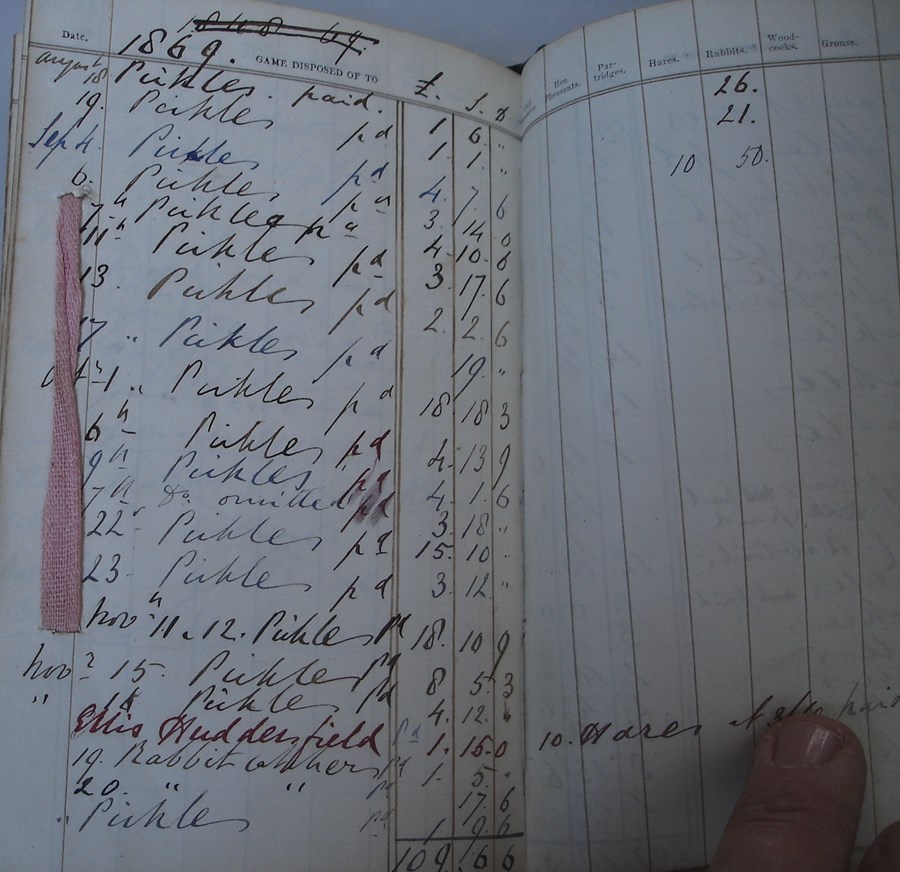 1869.
Date. GAME DISPOSED OF TO £. s. d
Hen Pheasants. Partridges. Hares. Rabbits. Woodcocks. Grouse.
August 18 Pickles paid. 1 6 " 26.
19. Pickles pd 1. 1. " 21.
Sep 4. Pickles pd 4. 7. 6 10 50.
6. Pickles pd 3. 14 0
7 " Pickles pd 4. 10. 6
11 " Pickles pd 3. 17. 6
13. Pickles pd 2. 2. 6
17 " Pickles pd 19. "
Oct 1 " Pickles pd 18. 18 3
6 " Pickles pd 4. 13 9
9 " Pickles pd 4. 1. 6
7 " Do omitted pd 3. 18 "
22 " Pickles pd 15. 10 "
23 " Pickles pd 3. 12 "
Nov 11 . 12. Pickles pd 18. 10 9
Nov 15. Pickles pd 8 5. 3
" Pickles pd 4. 12. "
Ellis Huddersfield Pd 1. 15. 0 10. Hares paid
19. Rabbit pd 1. 5. "
20. " " pd 17. 6
" Pickles pd 1 9. 6
109. 6 6